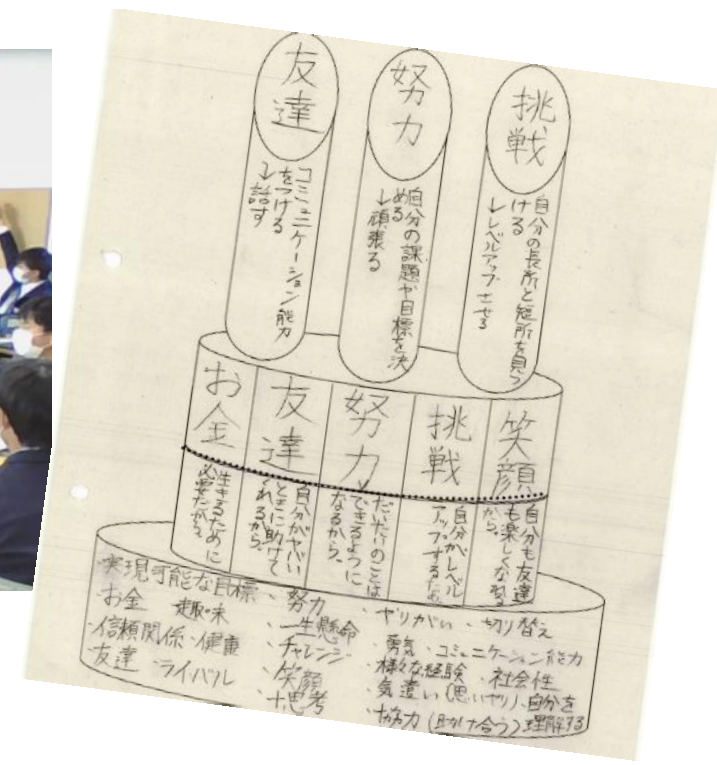 友達
コミュニケーション能力
をつける
↓話す
努力
自分の課題や目標を決
める
↓頑張る
挑戦
自分の長所と短所を見つ
ける
↓レベルアップさせる
お金
生きるために
必要だから。
友達
自分がヤバい
ときに助けて
くれるから。
努力
だいたいのことは
できるように
なるから。
挑戦
自分がレベル
アップするため
笑顔
自分も友達
も楽しくなる
から。
・実現可能な目標
・お金 趣味
・信頼関係・健康
・友達・ライバル
・努力
・一生懸命
・チャレンジ
・笑顔
・+思考
・やりがい・切り替え
・勇気・コミュニケーション能力
・様々な経験・社会性
・気遣い(思いやり)・自分を
・協力(助け合う)理解する